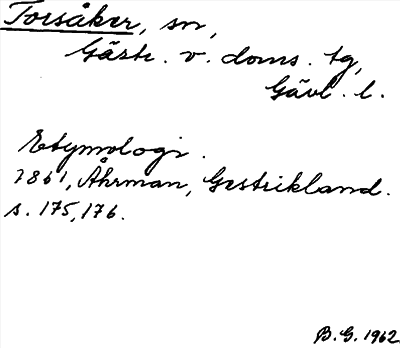 Torsåker, sn,
Gästr. v. doms. tg,
Gävl. l.
Etymologi.
1861, Åhrman, Gestrikland.
s. 175, 176.
B. G. 1962